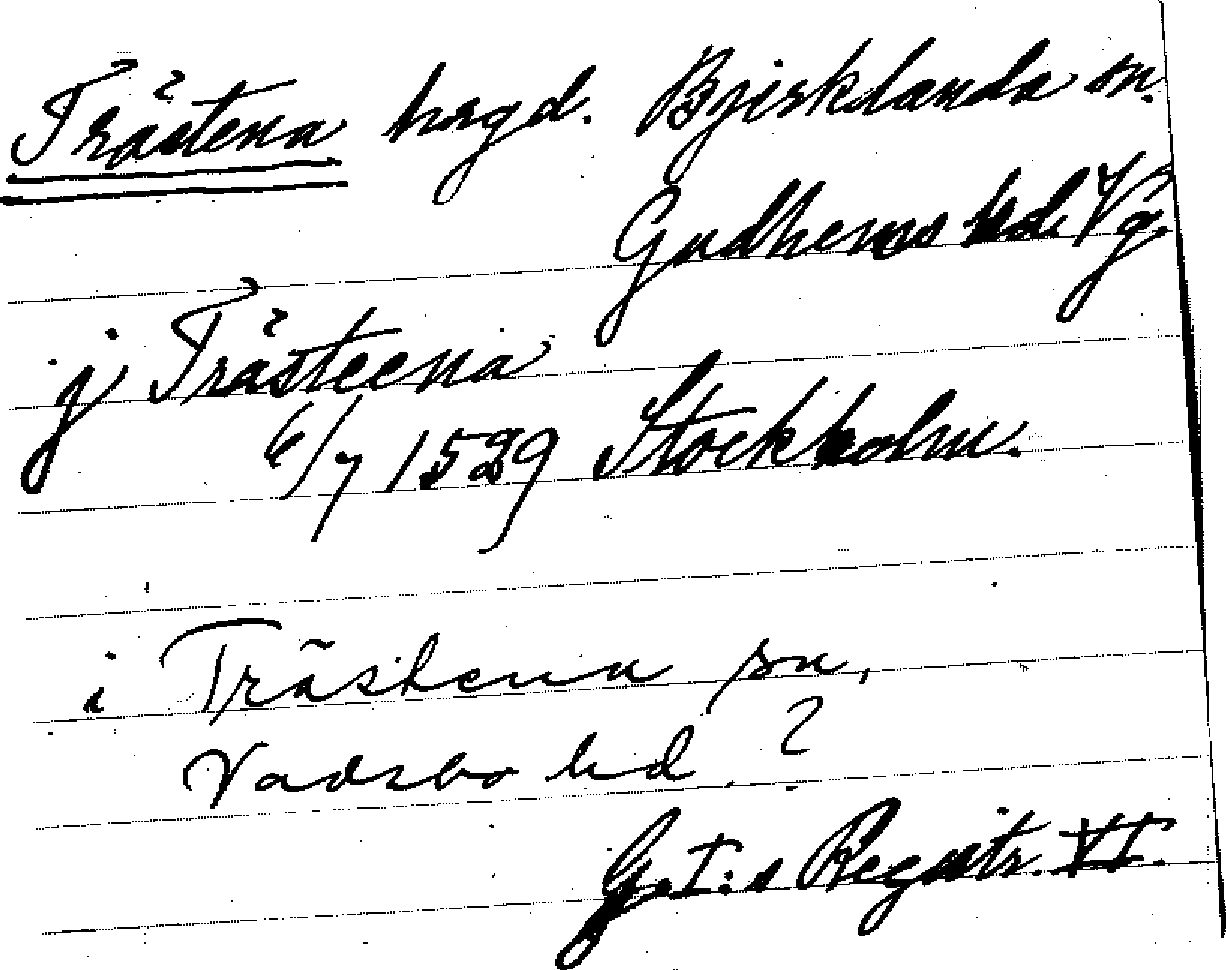 Trästena hrgd. Bjirklanda sn.
Gudhems hd. Vg.
j Trästeena
6/7 1529 Stockholm.
i Trästena sn,
Vadsbo hd. ?
G. I:s Registr. VI.